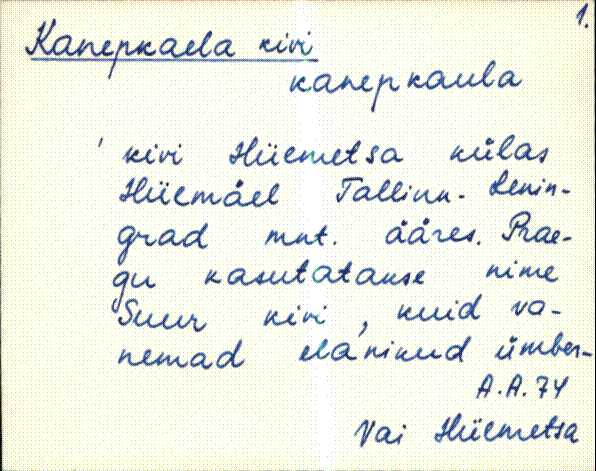 1.
Kanepkaela kivi
kanepkaula
' kivi Hiiemetsa külas
Hiiemäel Tallinn-Lenin-
grad mnt. ääres. Prae-
gu kasutatakse nime
Suur kivi, kuid va-
nemad elanikud ümber-
A.A. 74
Vai Hiiemetsa